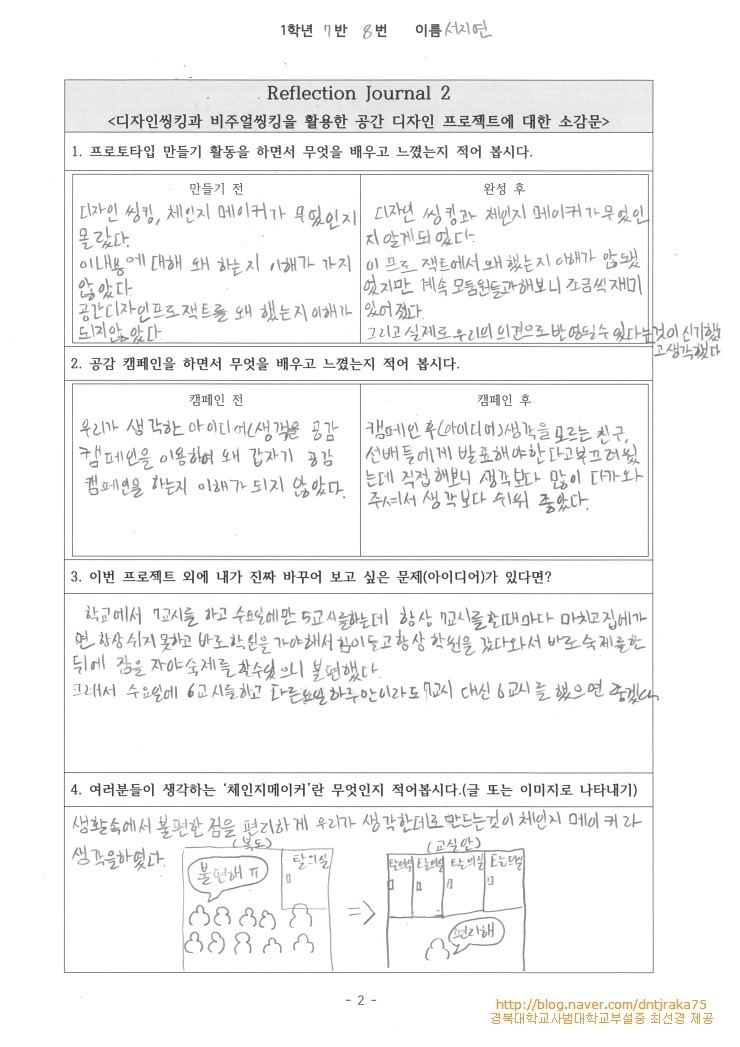 1학년 7반 8번 이름 서지연
Reflection Journal 2
<디자인씽킹과 비주얼씽킹을 활용한 공간 디자인 프로젝트에 대한 소감문>
1. 프로토타입 만들기 활동을 하면서 무엇을 배우고 느꼈는지 적어 봅시다.
만들기 전
디자인 씽킹, 체인지 메이커가 무엇인지
몰랐다.
이내용에 대해 왜 하는지 이해가 가지
않았다
공간디자인프로잭트를 왜 했는지 이해가
되지않았다
완성 후
디자인 씽킹과 체인지 메이커가 무엇인
지 알게되었다
이 프로잭트에서 왜 했는지 이해가 안됐
었지만 계속 모둠원들과해보니 조금씩 재미
있어졌다.
그리고 실제로 우리의 의견으로 반영될수 있다는것이 신기했
고생각했다
2. 공감 캠페인을 하면서 무엇을 배우고 느꼈는지 적어 봅시다.
캠페인 전
우리가 생각한 아이디어(생각)을 공감
캠페인을 이용하여 왜 갑자기 공감
캠페인을 하는지 이해가 되지 않았다.
캠페인 후
캠페인 후(아이디어)생각을 모르는 친구,
선배들에게 발표해야한다고부끄러웠
는데 직접해보니 생각보다 많이 다가와
주셔서 생각보다 쉬워 좋았다.
3. 이번 프로젝트 외에 내가 진짜 바꾸어 보고 싶은 문제(아이디어)가 있다면?
학교에서 7교시를 하고 수요일에만 5교시를하는데 항상 7교시를할때마다 마치고집에가
면 항상쉬지못하고 바로학원을가야해서 힘이들고항상 학원을 갔다와서 바로 숙제를한
뒤에 잠을 자야숙제를 할수있으니 불편했다.
그래서 수요일에 6교시를하고 다른요일하루만이라도 7교시 대신 6교시를 했으면 좋겠다.
4. 여러분들이 생각하는 '체인지메이커'란 무엇인지 적어봅시다.(글 또는 이미지로 나타내기)
생활속에서 불편한점을 편리하게 우리가 생각한데로만드는것이 체인지 메이커라
생각을하였다.
(복도)
탈의실
불편해 ㅠ
=>
(교실안)
탈의실 탈의실 탈의실 탈의실
편리해
- 2 -
http://blog.naver.com/dntjraka75
경북대학교사범대학교부설중 최선경 제공